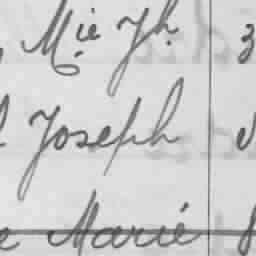 Mie Jh. 3
Joseph
e Marié